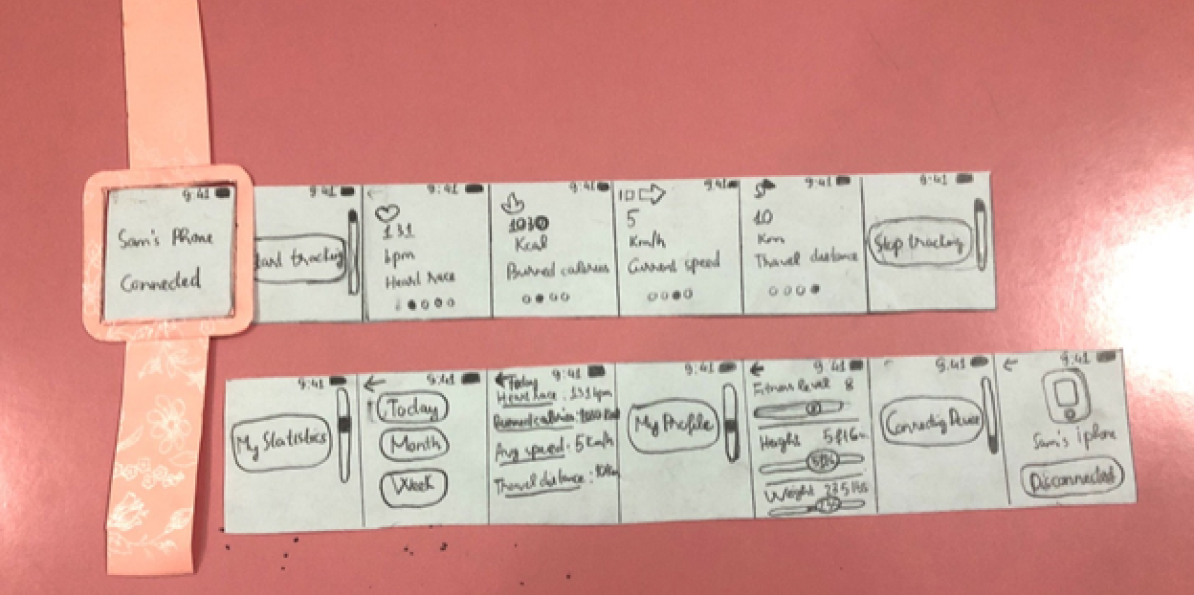 9:41
Sam's Phone
Connected
9:41
tart tracking
9:41
131
bpm
Heard
9:41
1030
Kcal
Burned calories
9:41
5
Km/h
Current speed
9:41
10
Km
Travel distance
9:41
Stop tracking
9:41
My Statistics
9:41
Today
Month
Week
9:41
Today
: 131 bpm
Burned calories:
Avg speed: 5 Km/h
Travel distance :
9:41
My Profile
9:41
Fitness level 8
Height 5ft6
Weight
9:41
9:41
Sam's iphone
Disconnected